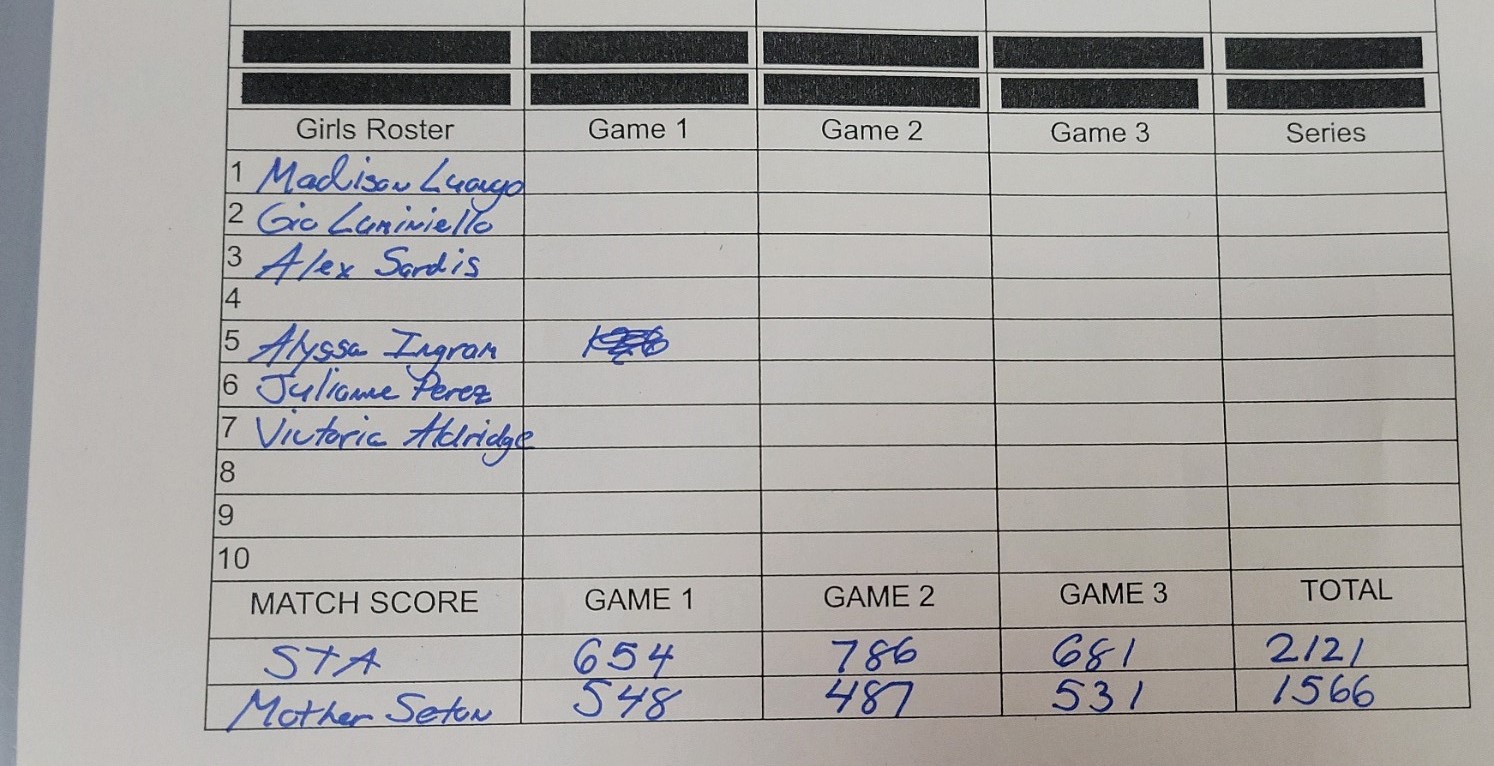 Girls Roster Game 1 Game 2 Game 3 Series
1 Madison Luongo
2 Gio Luminiello
3 Alex Sardis
4
5 Alyssa Ingram
6 Julianne Perez
7 Victoria Aldridge
8
9
10
MATCH SCORE GAME 1 GAME 2 GAME 3 TOTAL
STA 654 786 681 2121
Mother Seton 548 487 531 1566